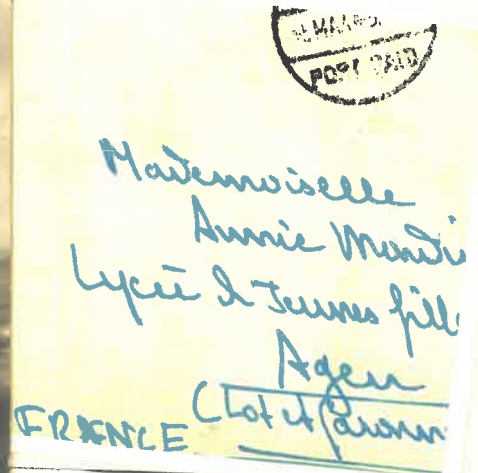 PORT SAID
Mademoiselle
Annie
Lycée de Jeunes fill
Agen
(Lot et Garonn
FRANCE